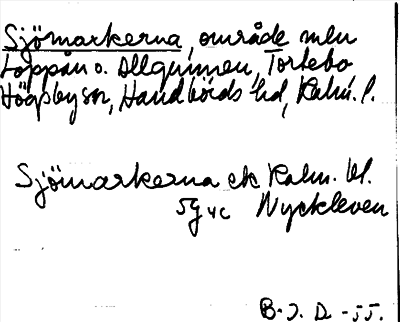 Sjömarkerna, område mln
Loppån o. Allgunnen, Tortebo
Högsby sn, Handbörds hd, Kalm. l.
Sjömarkerna ek Kalm. bl.
5g 4c Nyckleven
B.J.D. -55.